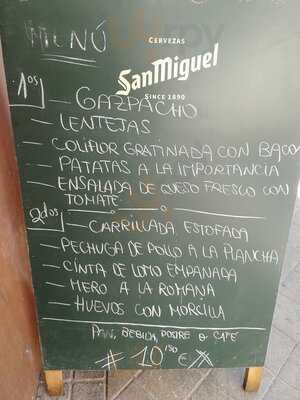 MENÚ
CERVEZAS
SanMiguel
SINCE 1890
1os
- GAZPACHO
- LENTEJAS
- COLIFLOR GRATINADA CON BACON
- PATATAS A LA IMPORTANCIA
- ENSALADA DE QUESO FRESCO CON
TOMATE
2dos
- CARRILLADA ESTOFADA
- PECHUGA DE POLLO A LA PLANCHA
- CINTA DE LOMO EMPANADA
- MERO A LA ROMANA
- HUEVOS CON MORCILLA
PAN, BEBIDA, POSTRE O CAFÉ
# 10'50 € #